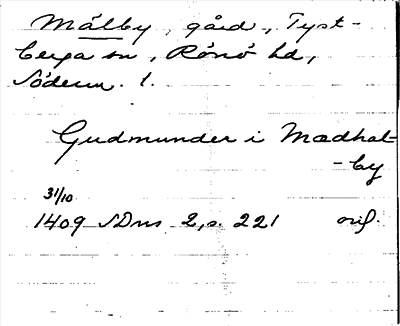 Målby, gård, Tyst-
berga sn, Rönö hd,
Söderm. l.
Gudmunder i Mædhal-
-by
31/10
1409 SDns 2, s. 221 orig.